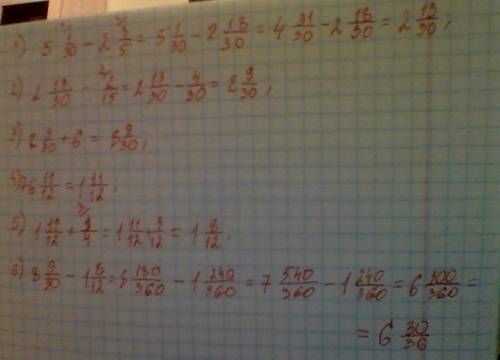 1) 5 1/30 - 2 3/5 = 5 1/30 - 2 18/30 = 4 31/30 - 2 18/30 = 2 13/30;
2) 2 13/30 - 2/15 = 2 13/30 - 4/30 = 2 9/30;
3) 2 9/30 + 6 = 8 9/30;
11/12 = 1 11/12;
5) 1 11/12 + 1/4 = 1 11/12 + 3/12 = 1 8/12;
6) 8 9/30 - 1 8/12 = 8 180/360 - 1 240/360 = 7 540/360 - 1 240/360 = 6 300/360 =
= 6 30/36